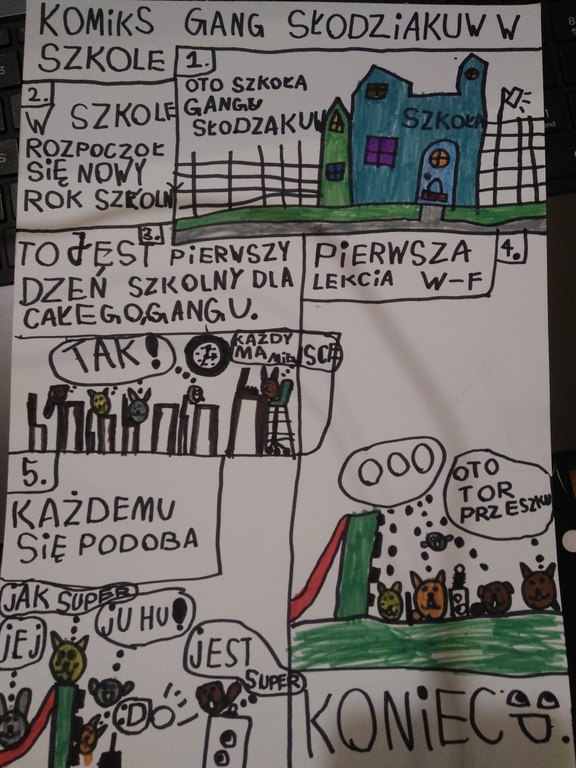 KOMIKS GANG SŁODZIAKUW W
SZKOLE
1.
OTO SZKOŁA
GANGU
SŁODZAKUW
SZKOŁA
2.
W SZKOLE
ROZPOCZOŁ
SIĘ NOWY
ROK SZKOLNY
3.
TO JEST PIERWSZY
DZEŃ SZKOLNY DLA
CAŁEGO,GANGU.
TAK!
KAŻDY
MA MIE
SCE
4.
PIERWSZA
LEKCIA W-F
OOO
OTO
TOR
PRZESZKU
5.
KAŻDEMU
SIĘ PODOBA
JAK SUPER
JEJ
JU HU!
:D
JEST
SUPER
KONIEC